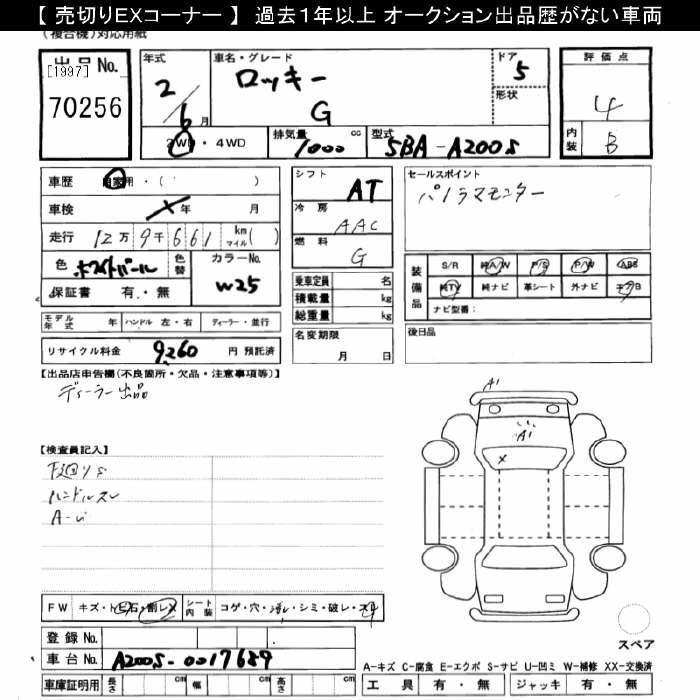 【 売切りEXコーナー 】 過去1年以上 オークション出品歴がない車両
(複合機)対応用紙
出品No.
[1997]
70256
年式
2/6月
車名・グレード
ロッキー
G
ドア
5
形状
2WD・4WD
排気量
1000 cc
型式
5BA-A200S
評価点
4
内装
B
車歴 自家用・( )
車検 年 月
走行 12万9千661 km マイル( )
色 ホワイトパール
色替
カラーNo.
W25
保証書 有・無
シフト
AT
冷房
AAC
燃料
G
乗車定員 名
積載量 kg
総重量 kg
名変期限
月 日
セールスポイント
パノラマモニター
装備品
S/R 純A/W P/S P/W ABS
純TV 純ナビ 革シート 外ナビ エアB
ナビ型番:
後日品
モデル年式 年 ハンドル 左・右 ディーラー・並行
リサイクル料金 9260 円 預託済
【出品店申告欄(不良箇所・欠品・注意事項等)】
ディーラー出品
【検査員記入】
下廻りS
ハンドルスレ
A1
A1
FW キズ・トビ石・割レX シート内装 コゲ・穴・汚レ・シミ・破レ・スレ
登録No.
車台No. A200S-0017689
車庫証明用 長さ cm 幅 cm 高さ cm
スペア
A-キズ C-腐食 E-エクボ S-サビ U-凹ミ W-補修 XX-交換済
工具 有・無 ジャッキ 有・無